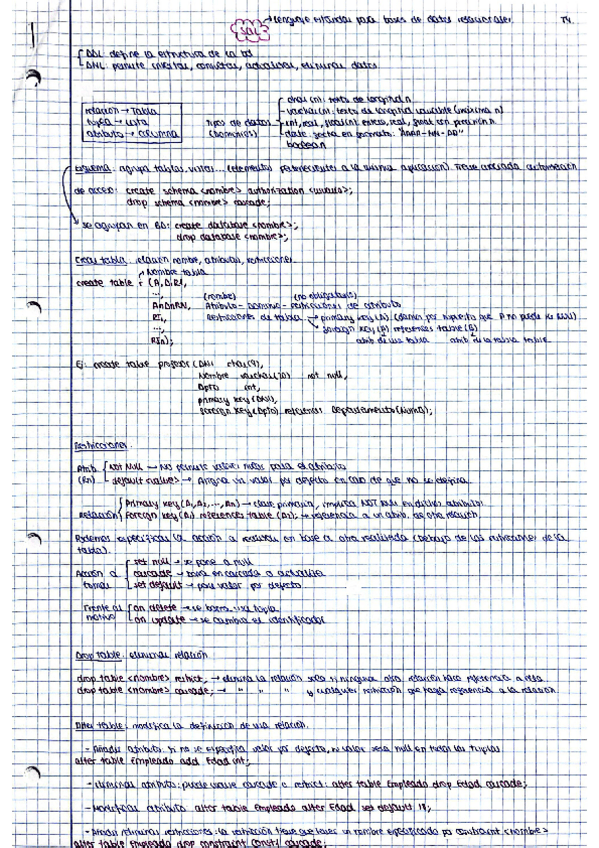 SQL → lenguaje estándar para bases de datos relacionales. T4.
DDL define la estructura de la bd
DML: permite insertar, consultar, actualizar, eliminar datos
relación → Tabla
tupla → fila
atributo → columna
Tipos de datos (dominios)
char(n): texto de longitud n
varchar(n): texto de longitud variable (máximo n)
int, real, float(n): entero, real, con precisión n
date: fecha en formato: "AAAA-MM-DD"
boolean
Esquema: agrupa tablas, vistas... (elementos) pertenecientes a la misma aplicación. Tiene asociada autorización
de acceso: create schema <nombre> authorization <usuario>;
drop schema <nombre> cascade;
se agrupan en BD: create database <nombre>;
drop database <nombre>;
Crear tabla: nombre, atributos, restricciones.
Nombre tabla
create table r (A1 D1 R1,
...,
(nombre) (no obligatorio)
AnDnRn, Atributo - Dominio - restricciones de atributo
RI1, Restricciones de tabla → primary key (A) (damos por supuesto que A no puede ser null)
..., foreign key (A) references table (B)
RIn); atrib de una tabla atrib de la tabla table
Ej: create table profesor (DNI char(9),
Nombre varchar(20) not null,
Dpto int,
primary key (DNI),
foreign key (Dpto) references Departamento (NumD);
Restricciones:
Atrib (Rn)
Not Null → No permite valores nulos para el atributo
default <valor> → Asigna un valor por defecto en caso de que no se defina
Relación
Primary key (A1, A2, ..., An) → clave primaria, implica NOT NULL en dichos atributos
Foreign key (A1) references table (A2); → referencia a un atrib. de otra relación
Podemos especificar la acción a realizar en base a otra realizada (debajo de las de la
tabla).
Acción a tomar
set null → se pone a null
cascade → borra en cascada o actualiza
set default → pone valor por defecto
Frente al motivo
on delete → se borra una tupla
on update → se cambia el identificador
Drop table: eliminar relación
drop table <nombre> restrict; → elimina la relación solo si ninguna otra relación hace referencia a ella
drop table <nombre> cascade; → " " " y cualquier restricción que haga referencia a la relación
Alter table: modifica la definición de una relación.
- Añadir atributo: si no se especifica valor por defecto, su valor será null en todas las tuplas
alter table Empleado add Edad int;
- Eliminar atributo: puede usarse cascade o restrict: alter table Empleado drop Edad cascade;
- Modificar atributo alter table Empleado alter Edad set default 18;
- Añadir/eliminar restricciones: la restricción tiene que tener un nombre especificado por constraint <nombre>
alter table Empleado drop constraint cascade;